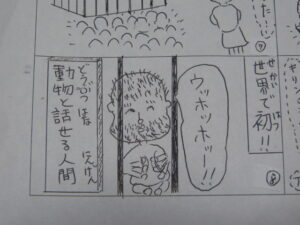 世界で初!!
せかい はつ
ウッホッホー!!
動物と話せる人間
どうぶつ はな にんげん
⑦
⑧